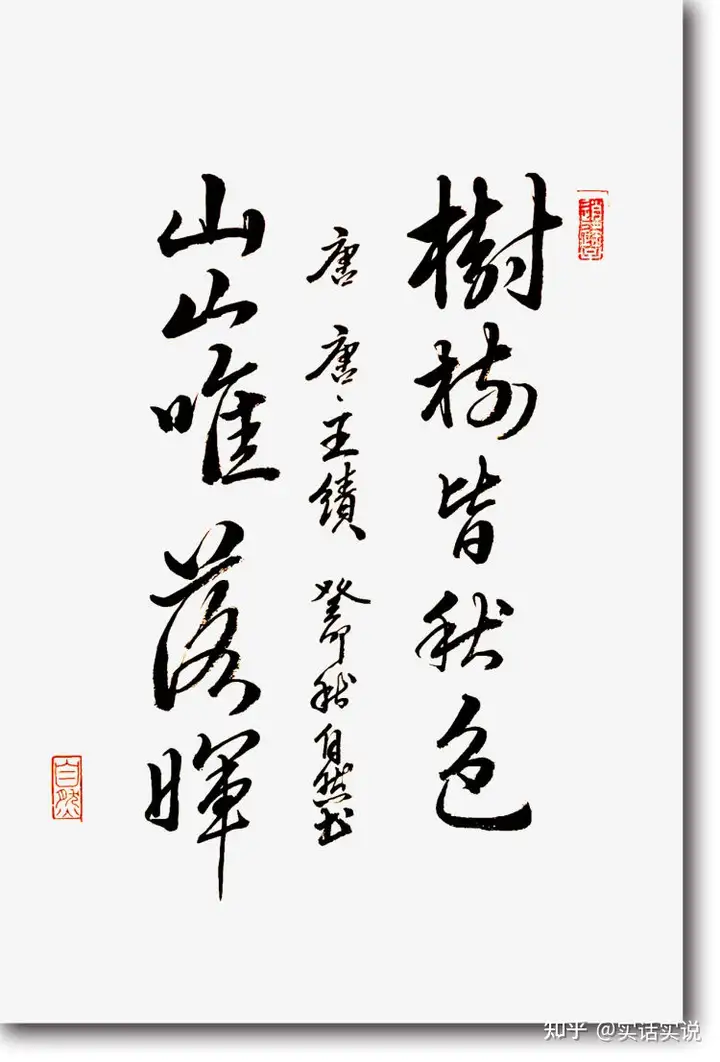 樹樹皆秋色
唐 唐 王績 癸卯秋自然书
山山唯落暉
自然
知乎 @实话实说